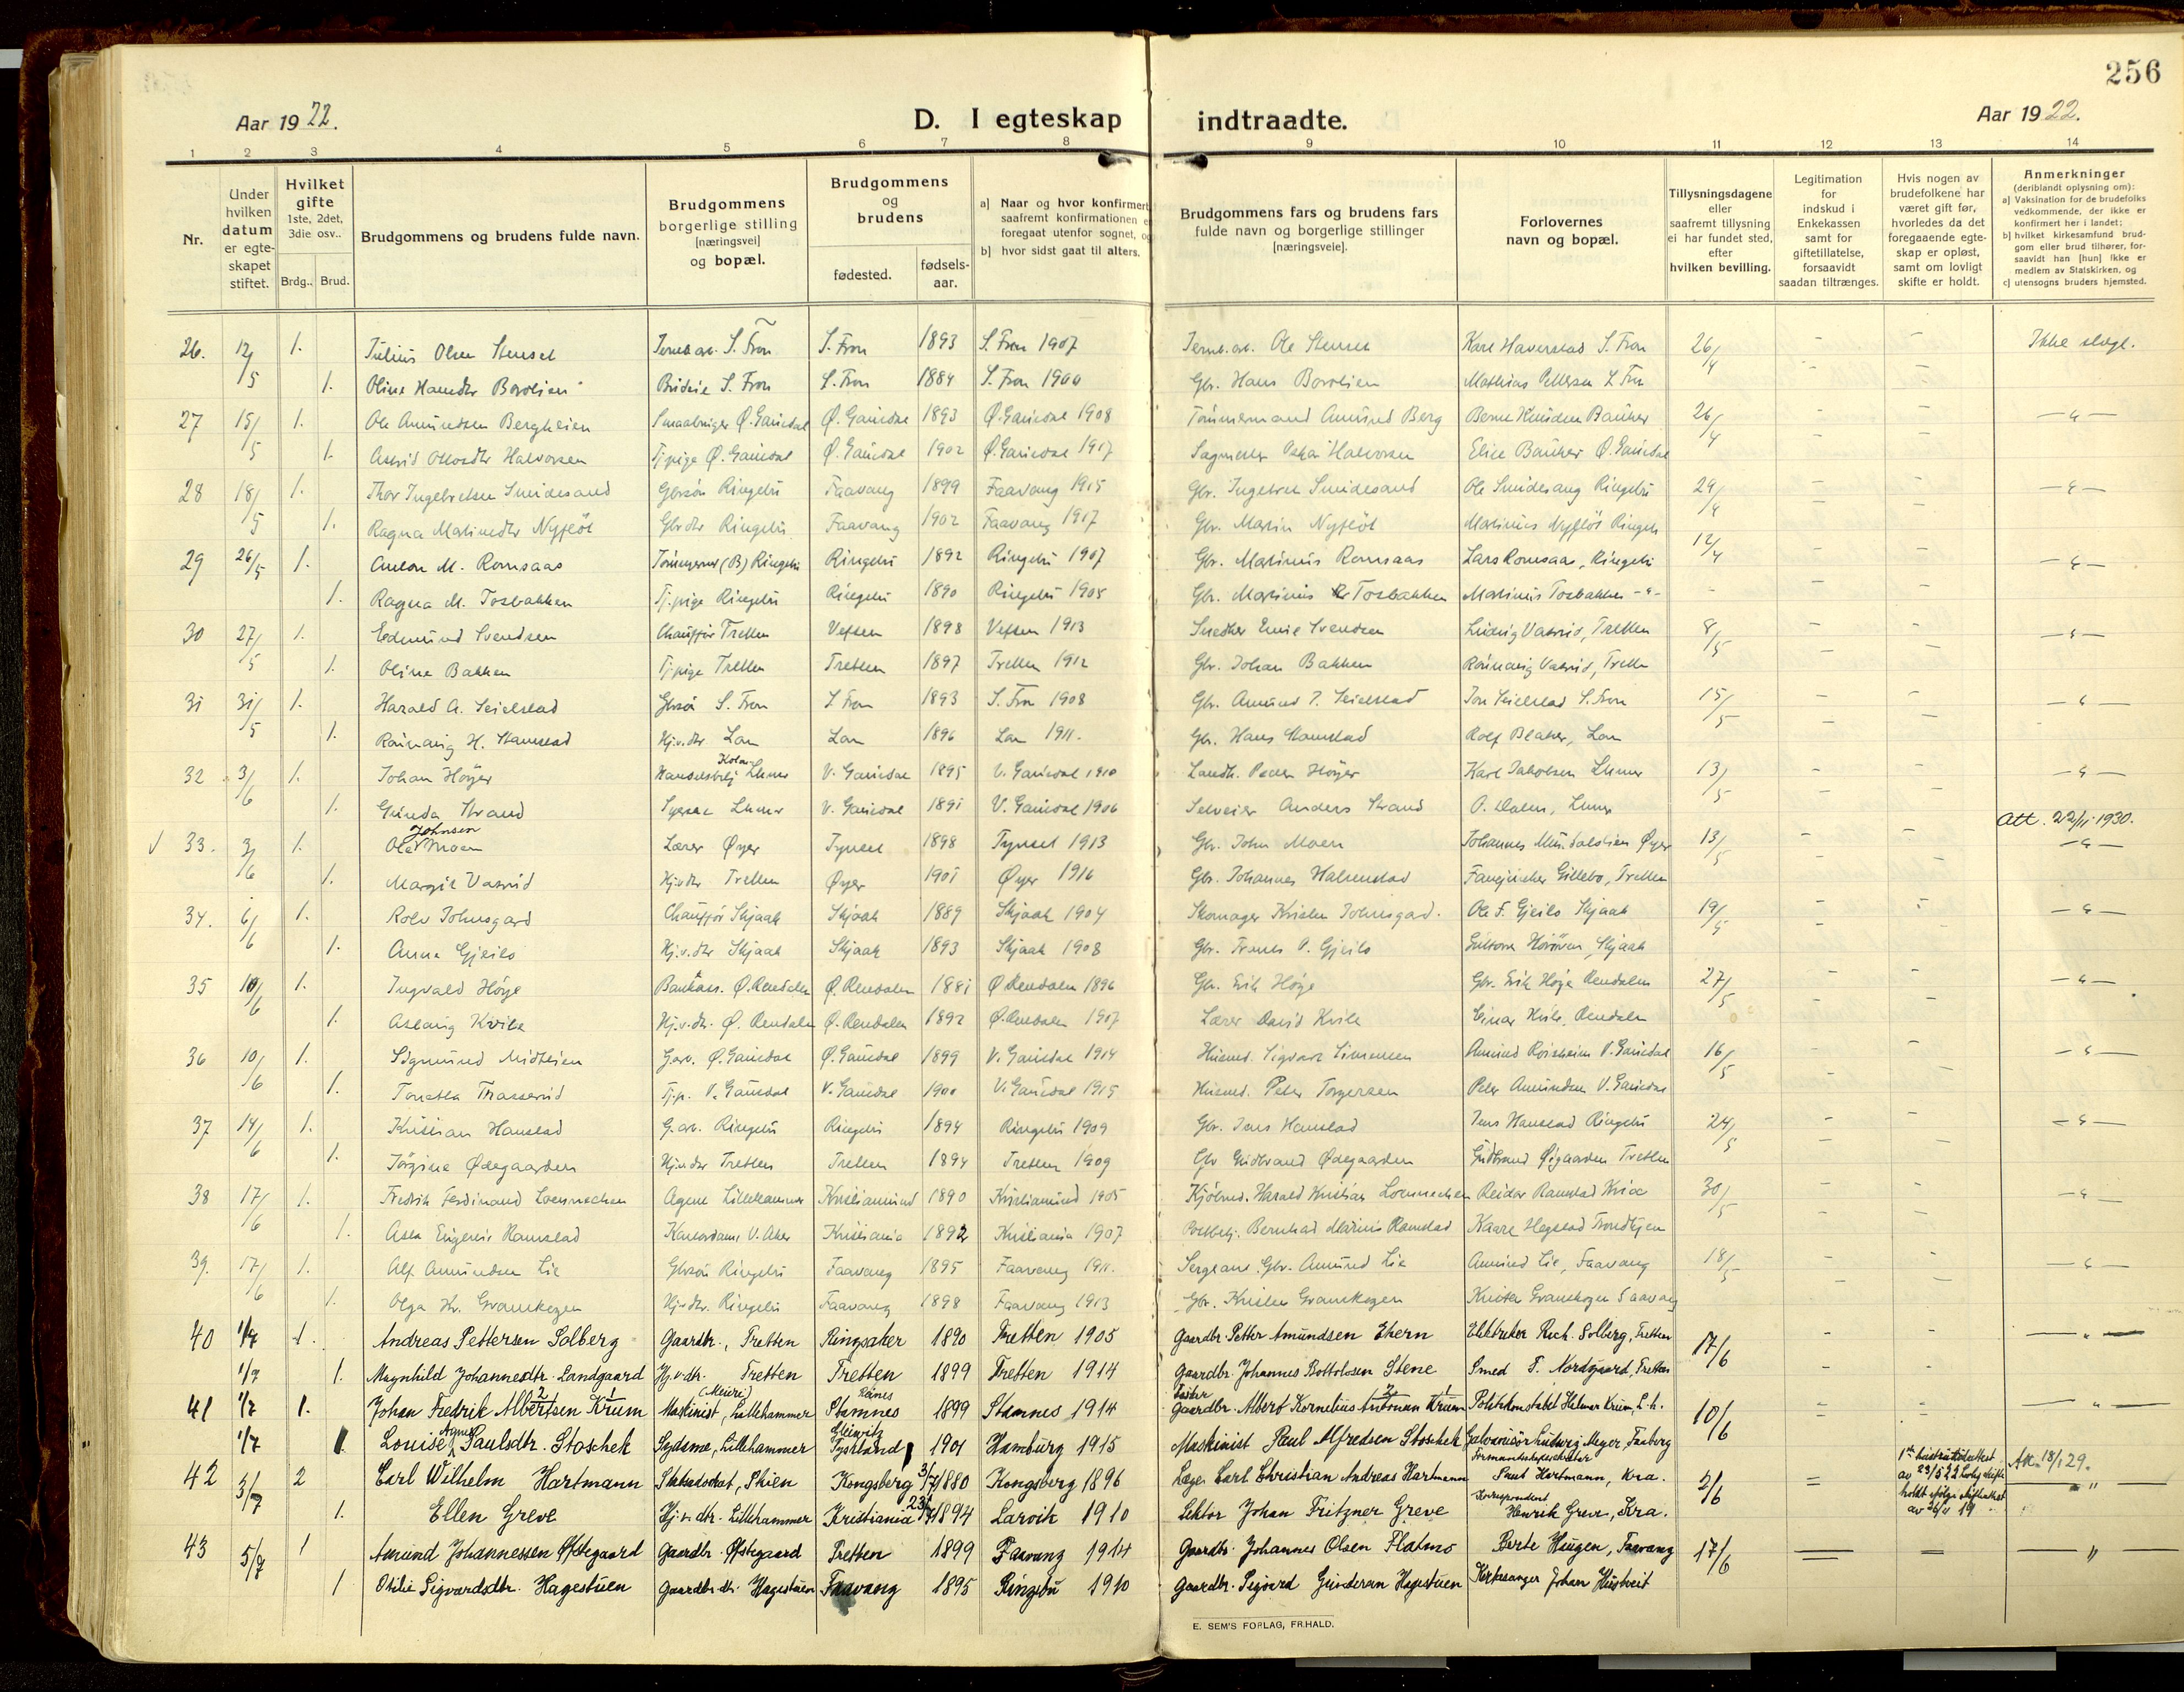 256
Aar 1922.
D. I egteskap indtraadte.
Aar 1922.
1 2 3 4 5 6 7 8 9 10 11 12 13 14
Nr.
Under hvilken datum er egteskapet stiftet.
Hvilket gifte 1ste, 2det, 3die osv..
Brdg.. Brud.
Brudgommens og brudens fulde navn.
Brudgommens borgerlige stilling [næringsvei] og bopæl.
Brudgommens og brudens
fødested.
fødsels-aar.
a] Naar og hvor konfirmert saafremt konfirmationen e foregaat utenfor sognet, og
b] hvor sidst gaat til alters.
Brudgommens fars og brudens fars fulde navn og borgerlige stillinger [næringsveie].
Forlovernes navn og bopæl.
Tillysningsdagene eller saafremt tillysning ei har fundet sted, efter hvilken bevilling.
Legitimation for indskud i Enkekassen samt for giftetillatelse, forsaavidt saadan tiltrænges.
Hvis nogen av brudefolkene har været gift før, hvorledes da det foregaaende egteskap er opløst, samt om lovligt skifte er holdt.
Anmerkninger (deriblandt oplysning om):
a] Vaksination for de brudefolks vedkommende, der ikke er konfirmert her i landet;
b] hvilket kirkesamfund brudgom eller brud tilhører, forsaavidt han [hun] ikke er medlem av Statskirken, og
c] utensogns bruders hjemsted.
26. 12/5 1. Julius Olsen Stenset Jernb.arb. S. Fron S. Fron 1893 S. Fron 1907 Jernb.arb. Ole Stenset Karl Haverstad S. Fron 26/4 – – Ikke slegt.
1. Oline Hansdtr Borolien S. Fron S. Fron 1884 S. Fron 1900 Gbr. Hans Borolien Mathias Pettersen S. Fron – –
27 15/5 1. Ole Amundsen Bergheien Smaabruger Ø. Gausdal Ø. Gausdal 1893 Ø. Gausdal 1908 Tømmermand Amund Berg Bernt Knudsen Bauker 26/4 – – – " –
1. Astrid Ottosdtr Halvorsen Tj.pige Ø. Gausdal Ø. Gausdal 1902 Ø. Gausdal 1917 Halvorsen Elise Bauker Ø. Gausdal – –
28 18/5 1. Thor Ingebretsen Smidesand Gbrsøn Ringebu Faavang 1899 Faavang 1915 Gbr. Ingebret Smidesand Ole Smidesang Ringebu 29/4 – – – " –
1. Ragna Martinsdtr Nyfløt Gbrdtr Ringebu Faavang 1902 Faavang 1917 Gbr. Martin Nyfløt Martinius Nyfløt Ringebu – –
29 26/5 1. Anton M. Romsaas (B) Ringebu Ringebu 1892 Ringebu 1907 Gbr. Martinius Romsaas Lars Romsaas, Ringebu 12/4 – – – " –
1. Ragna M. Tosbakken Tj.pige Ringebu Ringebu 1890 Ringebu 1905 Gbr. Martinius Tosbakken Martinius Tosbakken – " – – – –
30 27/5 1. Edmund Svendsen Chauffør Tretten Vefsen 1898 Vefsen 1913 Snedker Emil Svendsen Ludvig Vasrud, Tretten 8/5 – – – " –
1. Oline Bakken Tj.pige Tretten Tretten 1897 Tretten 1912 Gbr. Johan Bakken Rønnaug Vasrud, Tretten – –
31 31/5 1. Harald A. Seielstad Gbrsøn S. Fron S. Fron 1893 S. Fron 1908 Gbr. Amund P. Seielstad Jon Seielstad S. Fron 15/5 – – – " –
1. Rønnaug H. Stamstad Hj.v.dtr Lom Lom 1896 Lom 1911. Gbr. Hans Stamstad Rolf Blaker, Lom – –
32 3/6 1. Johan Høyer Handelsbetj. Lhmr V. Gausdal 1895 V. Gausdal 1910 Landh. Peder Høyer Karl Jakobsen Lhmr 13/5 – – – " –
1. Gunda Strand Syerske Lhmr V. Gausdal 1891 V. Gausdal 1906 Selveier Anders Strand O. Dalen, Lhmr Att. 22/11 1930.
33. 3/6 1. Ola Johnsen Moen Lærer Øyer Tynset 1898 Tynset 1913 Gbr. John Moen Johannes Øyer 13/5 – – – " –
1. Margit Vasrud Hj.v.dtr Tretten Øyer 1901 Øyer 1916 Gbr. Johannes Halmstad Gillebo, Tretten – –
34. 6/6 1. Rolv Johnsgard Chauffør Skjaak Skjaak 1889 Skjaak 1904 Skomager Kristen Johnsgard. Ole F. Gjeilo Skjaak 19/5 – – – " –
1. Anna Gjeilo Hj.v.dtr Skjaak Skjaak 1893 Skjaak 1908 Gbr. Frants O. Gjeilo Skjaak – –
35 10/6 1. Ingvald Høye Bankass. Ø. Rendalen Ø. Rendalen 1881 Ø. Rendalen 1896 Gbr. Erik Høye Gbr. Erik Høye Rendalen 27/5 – – – " –
1. Aslaug Kvile Hj.v.dtr. Ø. Rendalen Ø. Rendalen 1892 Ø. Rendalen 1907 Lærer David Kvile Einar Kvile, Rendalen – –
36 10/6 1. Sigmund Midtlien G.arb. Ø. Gausdal Ø. Gausdal 1899 V. Gausdal 1914 Husmd. Sigvart Simensen Amund Roisheim V. Gausdal 16/5 – – – " –
1. Tonetta Thasserud Tj.p. V. Gausdal V. Gausdal 1900 V. Gausdal 1915 Husmd. Peter Torgersen Peter Amundsen V. Gausdal – –
37 14/6 1. Kristian Hanstad G.arb. Ringebu Ringebu 1894 Ringebu 1909 Gbr. Jens Hanstad Jens Hanstad Ringebu 24/5 – – – " –
1. Jørgine Ødegaarden Hj.v.dtr Tretten Tretten 1894 Tretten 1909 Gbr Gudbrand Ødegaarden Gudbrand Øigaarden Tretten – –
38 17/6 1. Fredrik Ferdinand Loennechen Agent Lillehammer Kristiansund 1890 Kristiansund 1905 Kjøbmd. Harald Kristian Loennechen Reidar Ramstad Kria 30/5 – – – " –
1. Asta Eugenie Ramstad Kontordame V. Aker Kristiania 1892 Kristiania 1907 Bernhard Marius Ramstad Kaare Hegstad Trondhjem – –
39. 17/6 1. Alf Amundsen Lie Gbrsøn Ringebu Faavang 1895 Faavang 1911. Sergeant, Gbr. Amund Lie Amund Lie, Faavang 18/5 – – – " –
1. Olga Kr. Granskogen Hj.v.dtr. Ringebu Faavang 1898 Faavang 1913 Gbr. Kristen Granskogen Kristen Granskogen Faavang – –
40 1/7 1. Andreas Pettersen Solberg Gaardbr., Tretten Ringsaker 1890 Tretten 1905 Gaardbr. Petter Amundsen Ehern Elektriker Rich. Solberg, Tretten 17/6 – – – " –
1/7 1. Magnhild Johannedtr. Landgaard Hj.v.dtr. Tretten Tretten 1899 Tretten 1914 Gaardbr. Johannes Bottolvsen Stene Smed T. Nordgaard, Tretten – –
41 1/7 1. Johan Fredrik Albertsen Krum Maskinist (Meieri), Lillehammer Stamnes 1899 Stamnes 1914 Gaardbr. Albert Kornelius Antonsen Krum Politikonstabel Helmer Krum, L.h. 10/6 – – – " –
1/7 1. Louise Agnes Paulsdtr. Stoschek Sydame, Lillehammer Gleiwitz Tyskland 1901 Hamburg 1915 Maskinist Paul Alfredsen Stoschek Galvanisør Ludwig Meyer, Faaberg
42 3/7 2 Carl Wilhelm Hartmann Statsadvokat, Skien Kongsberg 3/7 1880 Kongsberg 1896 Læge Carl Christian Andreas Hartmann Formandskapssekretær Paul Hartmann, Kra. 2/6 = Att. 18/1 29. – " –
1. Ellen Greve Hj.v.dtr. Lillehammer Kristiania 1894 Larvik 1910 Lektor Johan Fritzner Greve Korrespondent Henrik Greve, Kra.
43 5/7 1 Amund Johannessen Øfstegaard Gaardbr. Øfstegaard Tretten 1899 Faavang 1914 Gaardbr. Johannes Olsen Flatmo Berte Haugen, Faavang 17/6 = – – " –
1 Otilie Sigvardsdtr. Hagestuen Gaardbr.dtr. Hagestuen Faavang 1895 Ringebu 1910 Gaardbr. Sigvard Gundersen Hagestuen Kirkesanger Johan Hustveit
E. SEM'S FORLAG, FR.HALD.